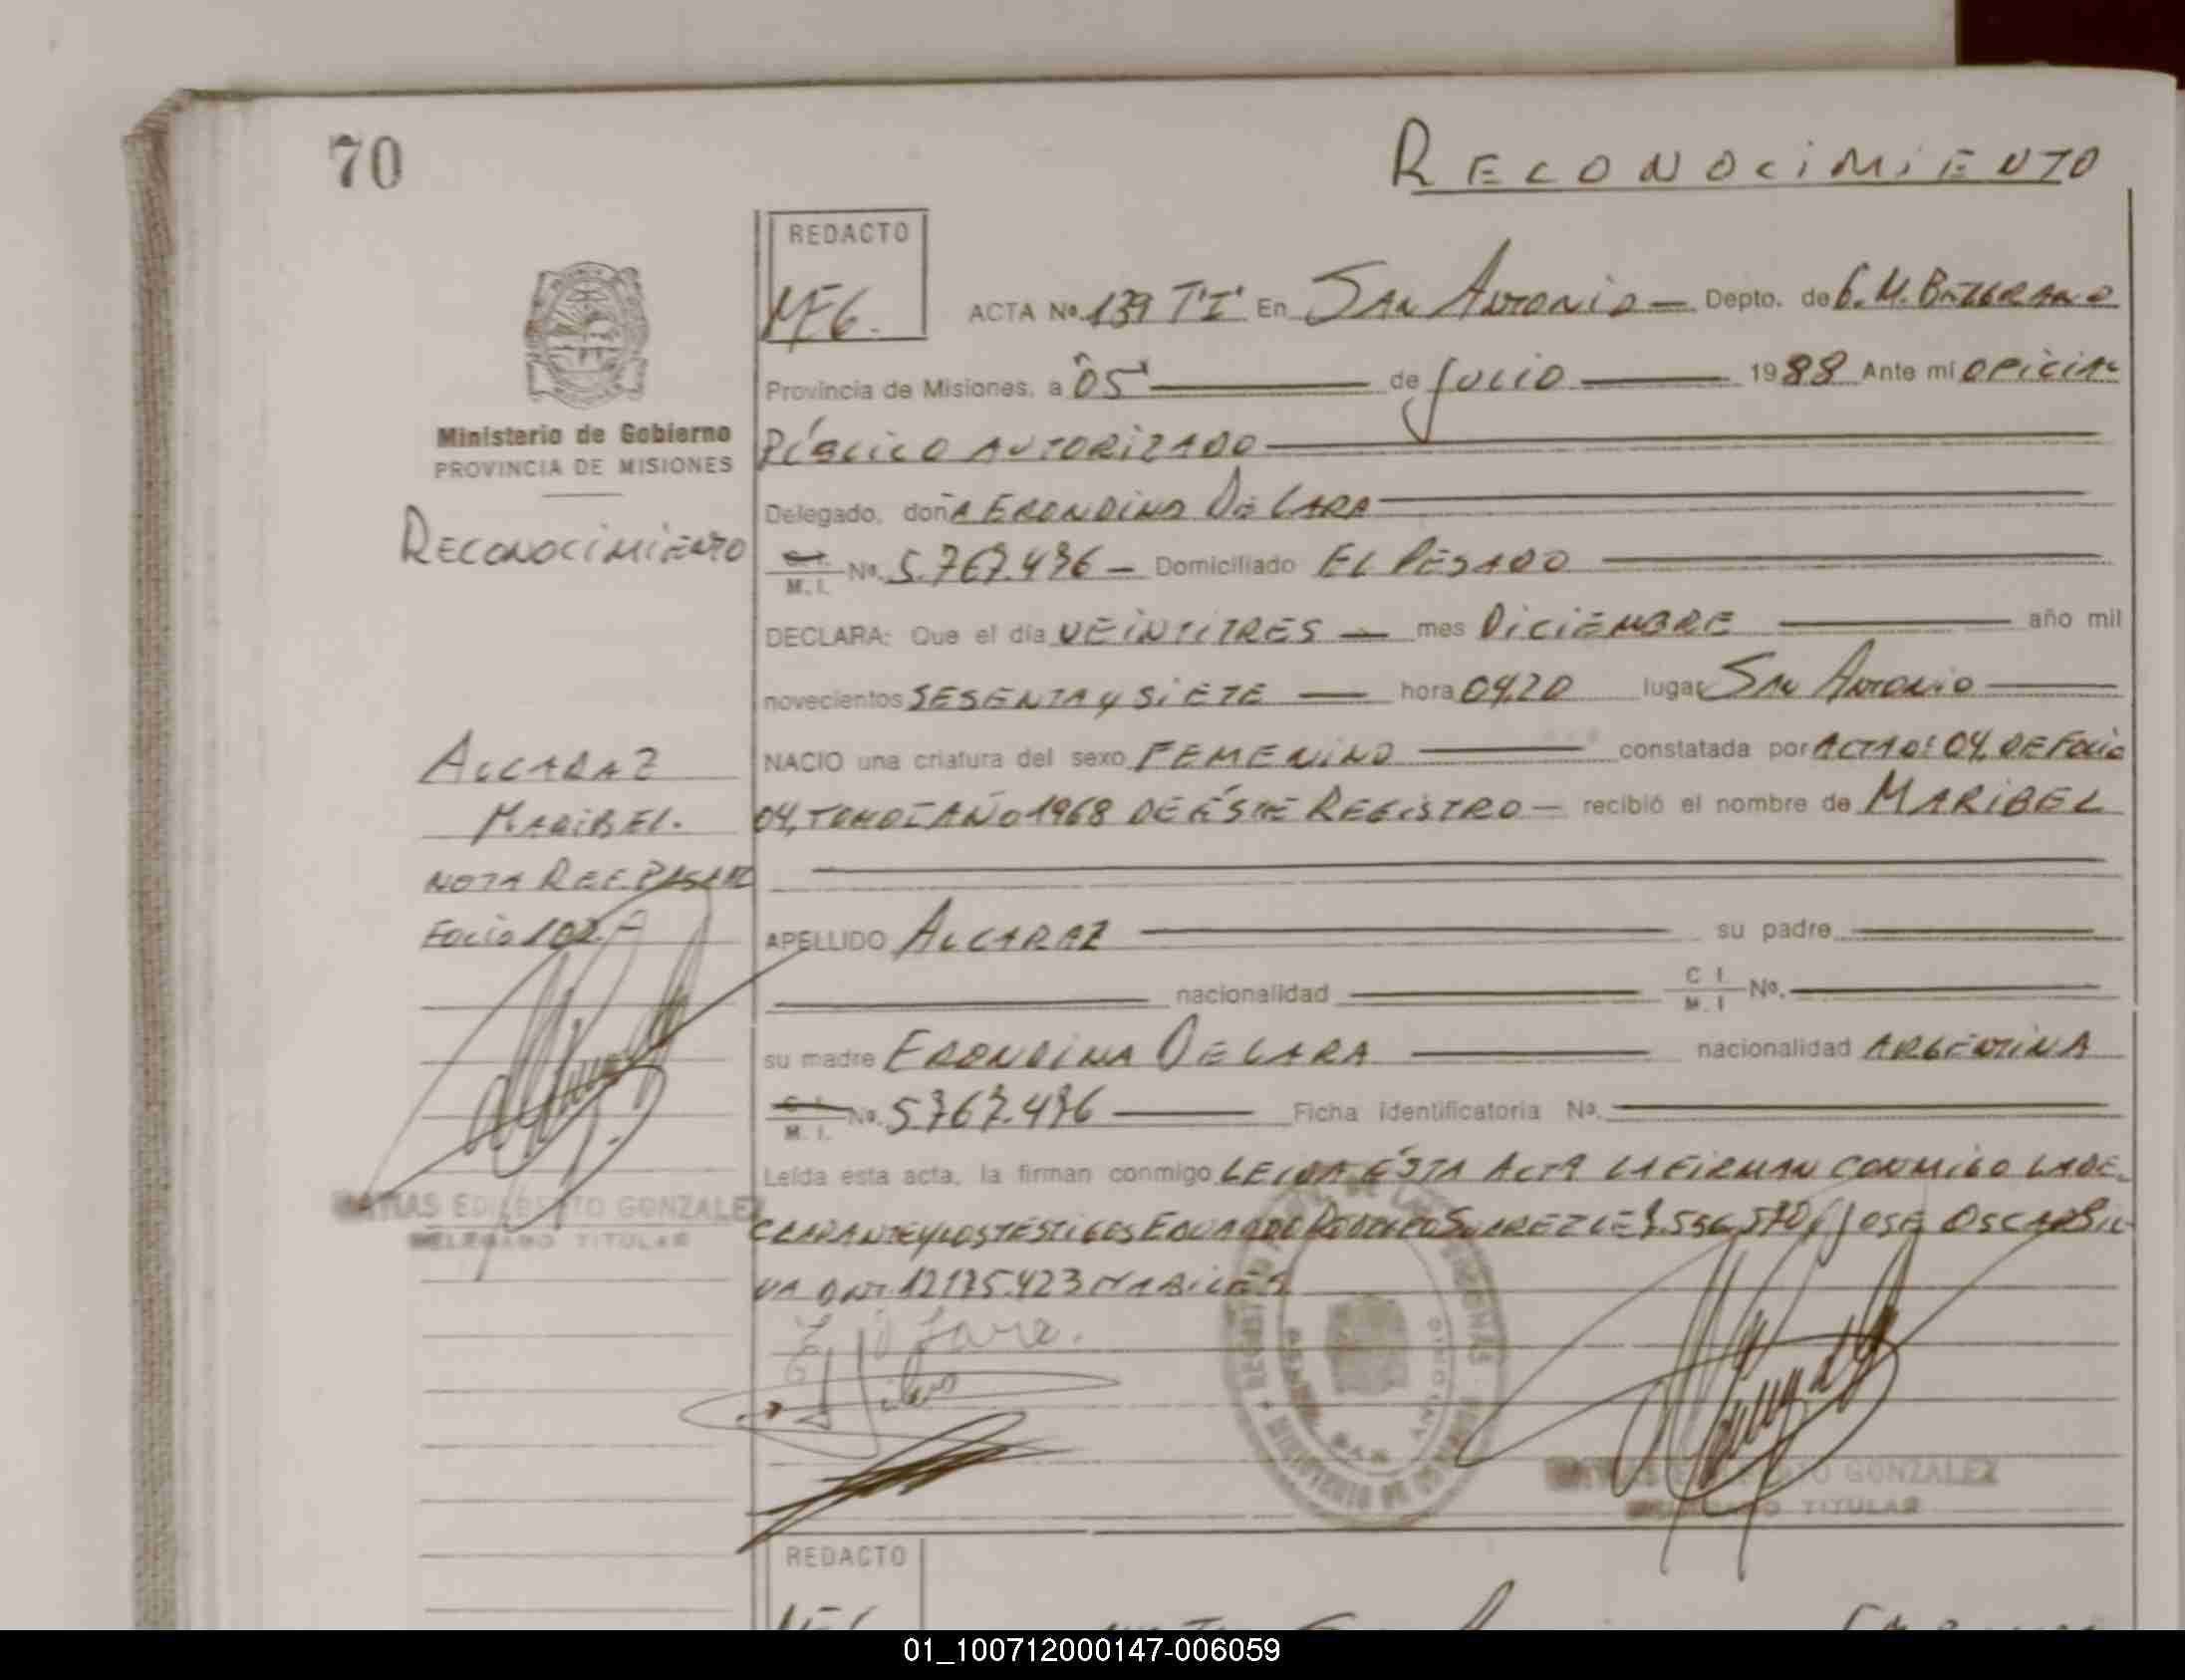 70
RECONOCIMIENTO
REDACTO
MEG.
ACTA Nº. 139 T'I' En SAN ANTONIO — Depto. de G. M. BELGRANO
Provincia de Misiones, a 05 de JULIO 1988 Ante mí OFICIAL
PÚBLICO AUTORIZADO
Delegado, doña ERONDINA DE LARA
C.I. M.I. Nº. 5.767.496 — Domiciliado EL PESADO
DECLARA: Que el día VEINTITRES — mes DICIEMBRE año mil
novecientos SESENTA y SIETE — hora 04,20 lugar SAN ANTONIO
NACIO una criatura del sexo FEMENINO constatada por ACTA Nº 04, DE FOLIO
04, TOMO I AÑO 1968 DE ÉSTE REGISTRO — recibió el nombre de MARIBEL
APELLIDO ALCARAZ su padre
nacionalidad C I. M. I Nº.
su madre ERONDINA DE LARA nacionalidad ARGENTINA
C.I. M.I. Nº. 5.767.496 Ficha identificatoria Nº.
Leída esta acta, la firman conmigo LEIDA ÉSTA ACTA LA FIRMAN CONMIGO LA DE-
CLARANTE Y LOS TESTIGOS EDUARDO RODOLFO SUAREZ LE JOSE OSCAR SIL-
VA DNI. 12175.423 HABILES
Ministerio de Gobierno
PROVINCIA DE MISIONES
RECONOCIMIENTO
ALCARAZ
MARIBEL.
NOTA REF.
FOLIO 102.
MATIAS EDILBERTO GONZALEZ
DELEGADO TITULAR
MATIAS EDILBERTO GONZALEZ
DELEGADO TITULAR
REDACTO
01_100712000147-006059